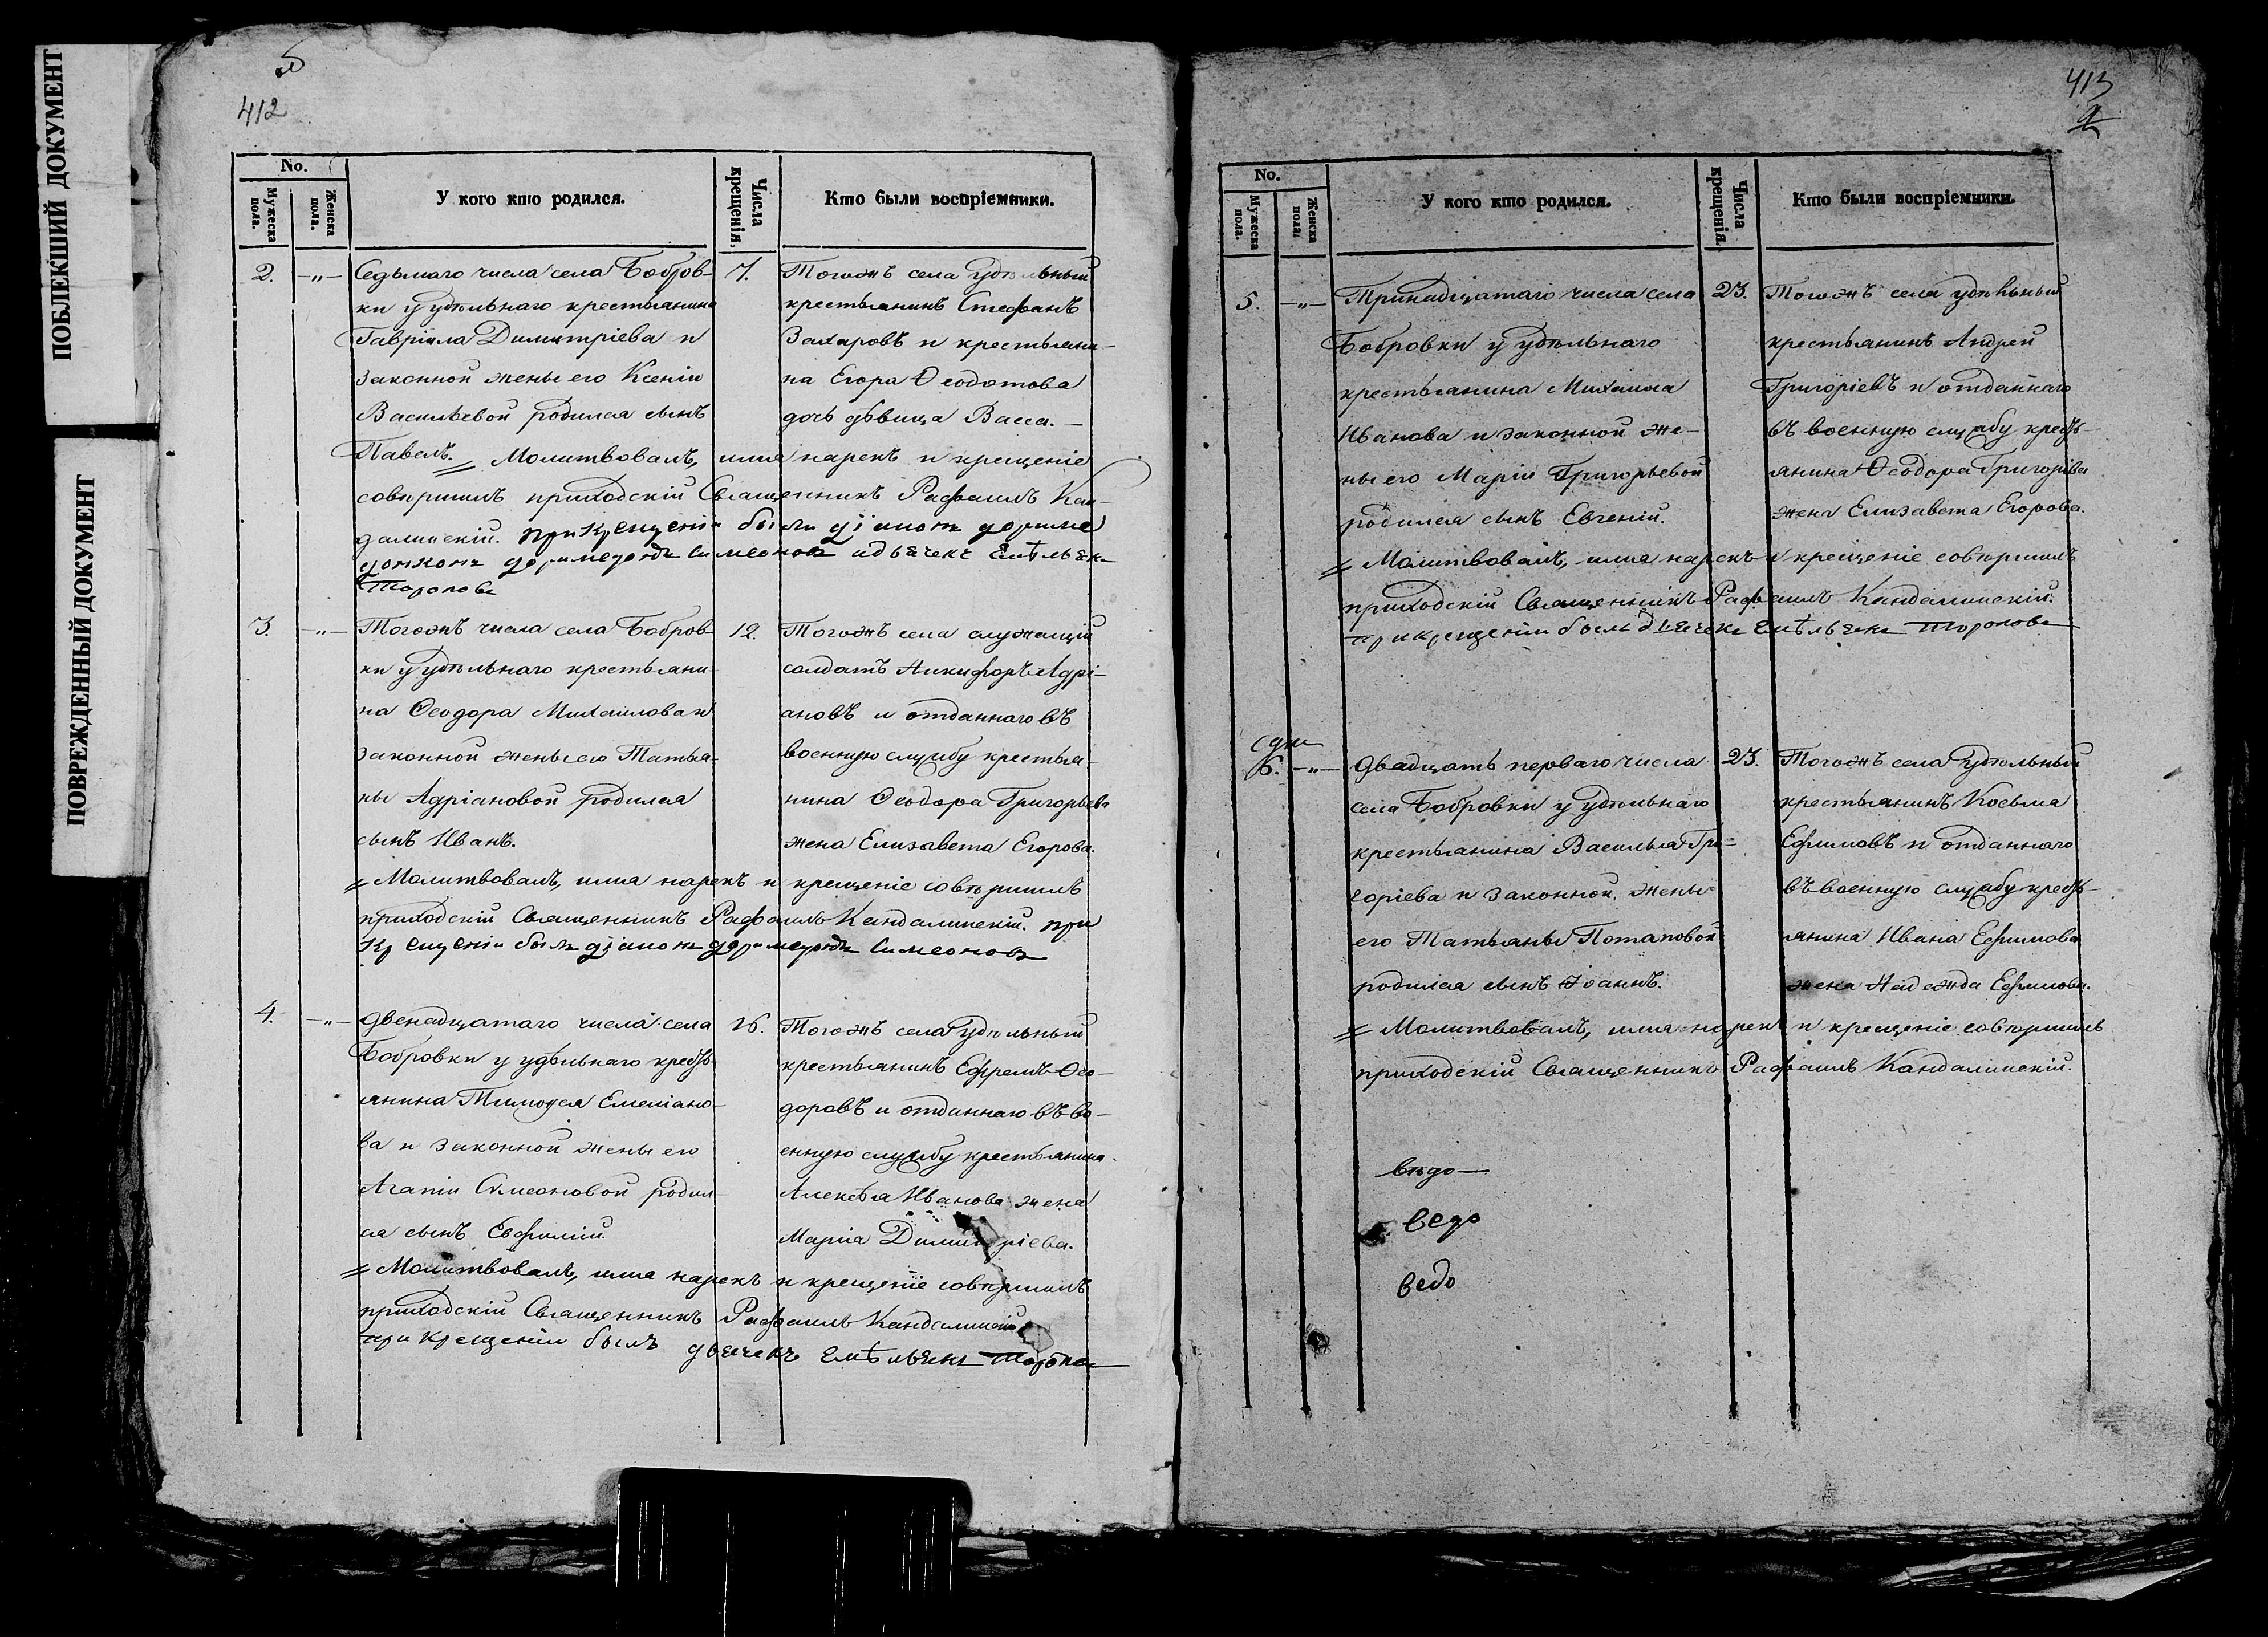 ПОБЛЕКШИЙ ДОКУМЕНТ
ПОВРЕЖДЕННЫЙ ДОКУМЕНТ
412
No.
Мужеска пола.
Женска пола.
У кого кто родился.
Числа крещенія.
Кто были воспріемники.
2. -"-
Седьмаго числа села Бобров-
ки у удѣльнаго крестьянина
Гавріила Димитріева и
законной жены его Ксеніи
Васильевой родился сынъ
Павелъ.
7.
Тогожъ села удѣльный
крестьянинъ Стефанъ
Захаровъ и крестьяни-
на Егора Ѳеодотова
дочь дѣвица Васса. -
Молитвовалъ, имя нарекъ и крещеніе
совершилъ приходскій Священникъ Рафаилъ Кан-
далинскій. При крещеніи были
Симеоновъ и дьячекъ
Тороповъ
3. -"-
Тогожъ числа села Бобров-
ки у удѣльнаго крестьяни-
на Ѳеодора Михаилова и
законной жены его Татья-
ны Адріановой родился
сынъ Иванъ.
12.
Тогожъ села служащій
солдатъ Никифоръ Адрі-
ановъ и отданнаго въ
военную службу крестья-
нина Ѳеодора Григорьева
жена Елизавета Егорова.
Молитвовалъ, имя нарекъ и крещеніе совершилъ
приходскій Священникъ Рафаилъ Кандалинскій. при
крещеніи былъ діаконъ Симеоновъ
4. -"-
Двенадцатаго числа села
Бобровки у удѣльнаго кресть-
янина Тимоѳея Емелiано-
ва и законной жены его
Агапіи Симеоновой родил-
ся сынъ Евфимій.
16.
Тогожъ села удѣльный
крестьянинъ Ефремъ Ѳео-
доровъ и отданнаго въ во-
енную службу крестьянина
Алексѣя Иванова жена
Марія Димитріева.
Молитвовалъ, имя нарекъ и крещеніе совершилъ
приходскій Священникъ Рафаилъ Кандалинскій
при крещеніи былъ дьячекъ Тороповъ
413
No.
Мужеска пола.
Женска пола.
У кого кто родился.
Числа крещенія.
Кто были воспріемники.
5. -"-
Тринадцатаго числа села
Бобровки у удѣльнаго
крестьянина Михаила
Иванова и законной же-
ны его Маріи Григорьевой
родился сынъ Евгеній.
23.
Тогожъ села удѣльный
крестьянинъ Андрей
Григоріевъ и отданнаго
въ военную службу кресть-
янина Ѳеодора Григоріва
жена Елизавета Егорова.
Молитвовалъ, имя нарекъ и крещеніе совершилъ
приходскій Священникъ Рафаилъ Кандалинскій.
при крещеніи былъ дьячекъ Тороповъ
6. -"-
Двадцать перваго числа
села Бобровки у удѣльнаго
крестьянина Василья Гри-
горіева и законной жены
его Татьяны Потаповой
родился сынъ Іоаннъ.
23.
Тогожъ села удѣльный
крестьянинъ Косьма
Ефимовъ и отданнаго
въ военную службу кресть-
янина Ивана Ефимова
жена Надежда Ефимова.
Молитвовалъ, имя нарекъ и крещеніе совершилъ
приходскій Священникъ Рафаилъ Кандалинскій.
ведо
ведо